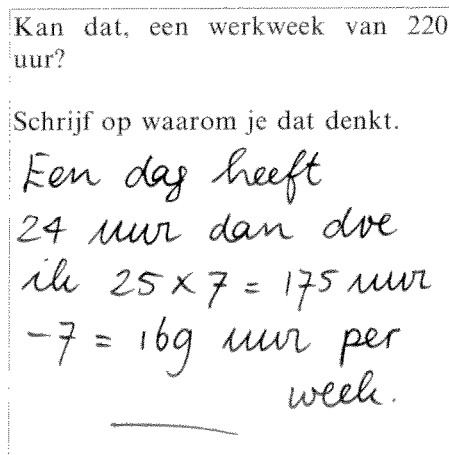 Kan dat, een werkweek van 220
uur?
Schrijf op waarom je dat denkt.
Een dag heeft
24 uur dan doe
ik 25 x 7 = 175 uur
-7 = 169 uur per
week.